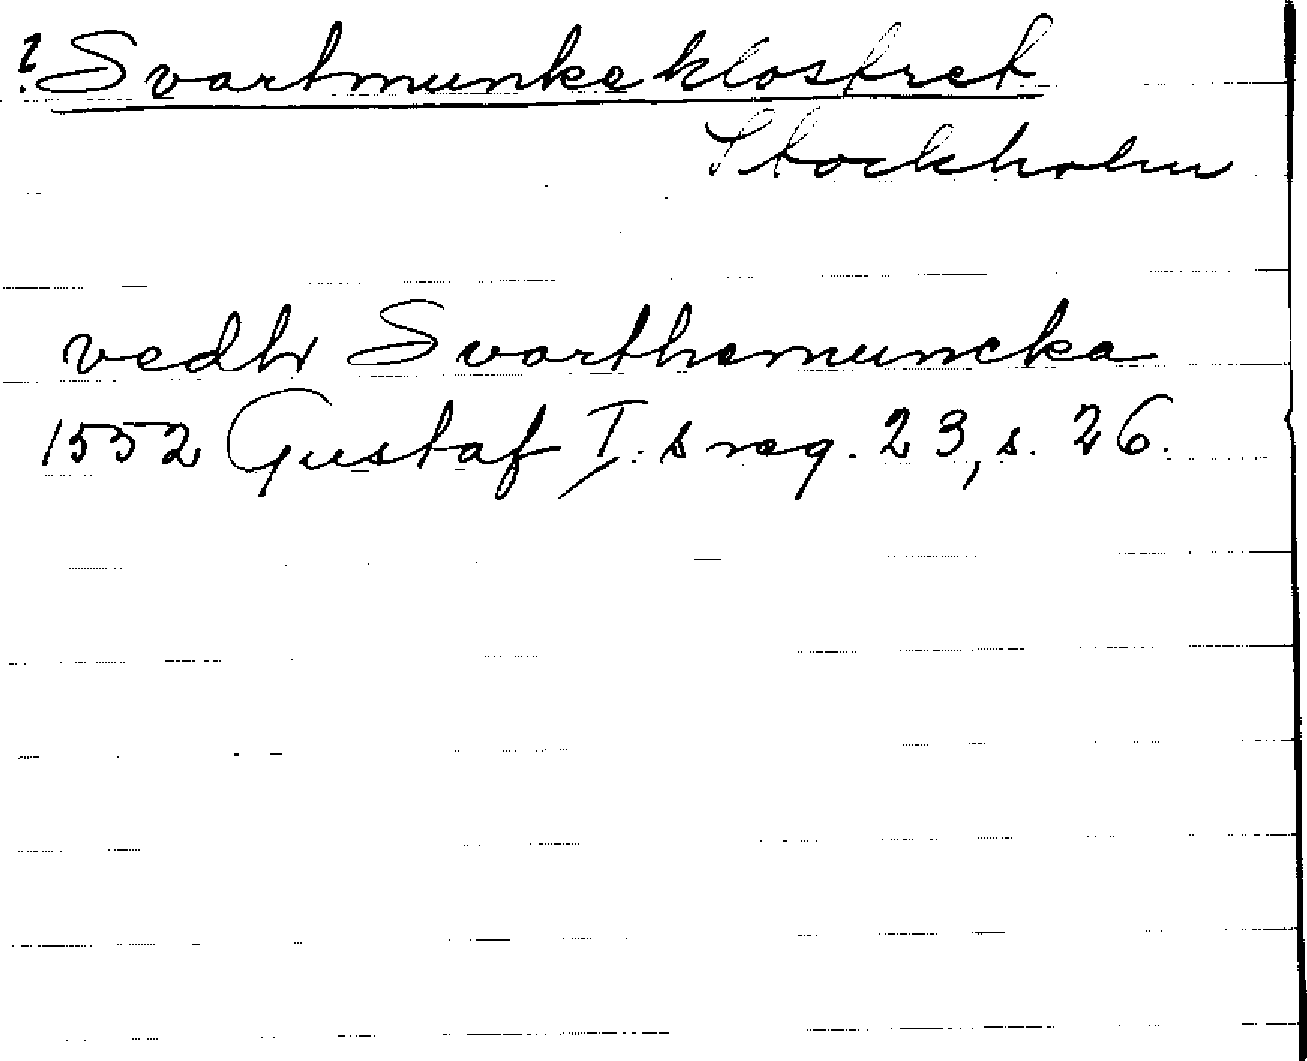 ? Svartmunkeklostret
Stockholm
vedhr Svarthemuncka
1552 Gustaf I. s reg. 23, s. 26.